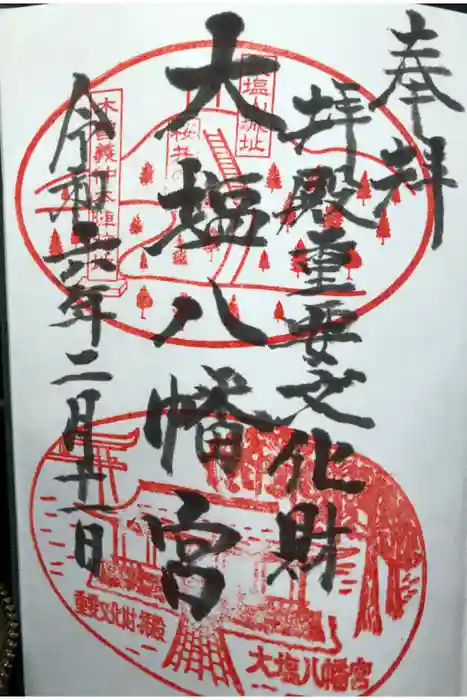 奉拝
拝殿重要文化財
大塩八幡宮
令和六年二月十一日
塩山城址
桜井の
木曽義仲本陣
重要文化財・拝殿
大塩八幡宮